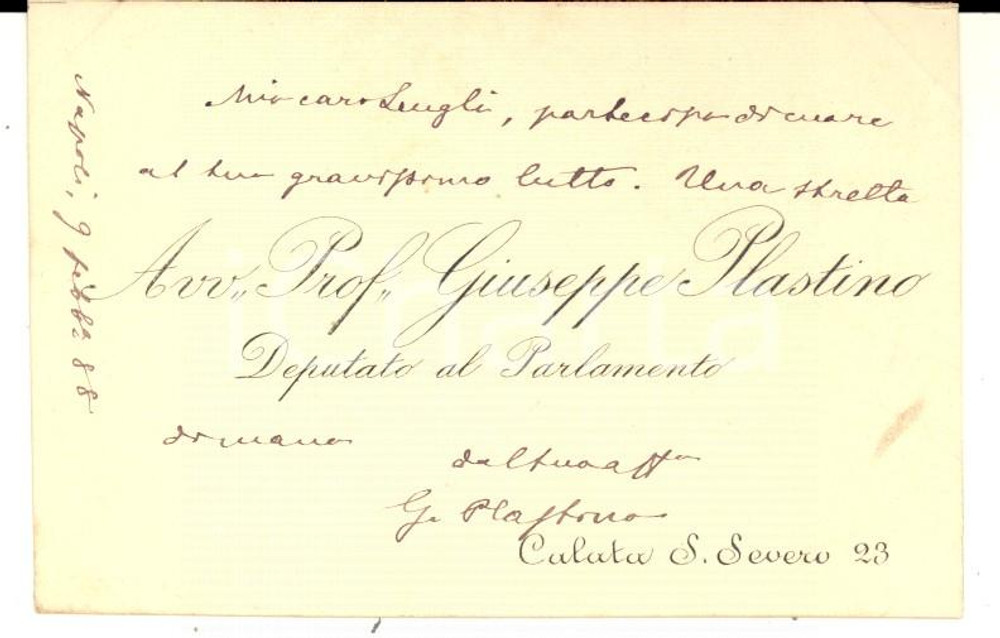 Napoli, 9 febb.º 88
Mio caro Lengli, partecipo di cuore
al tuo gravissimo lutto. Una stretta
Avv.„ Prof.„ Giuseppe Plastino
Deputato al Parlamento
di mano
dal tuo affº
G. Plastino
Calata S. Severo 23